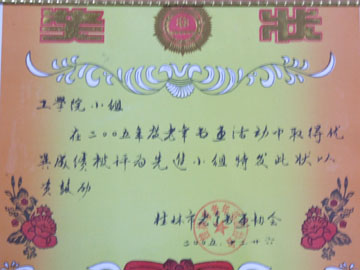 奖状
工學院小组
在二00五年度老年书画活动中取得优
異成绩被评为先進小组特发此状以
资鼓励
桂林市老年书画协会
二00五.